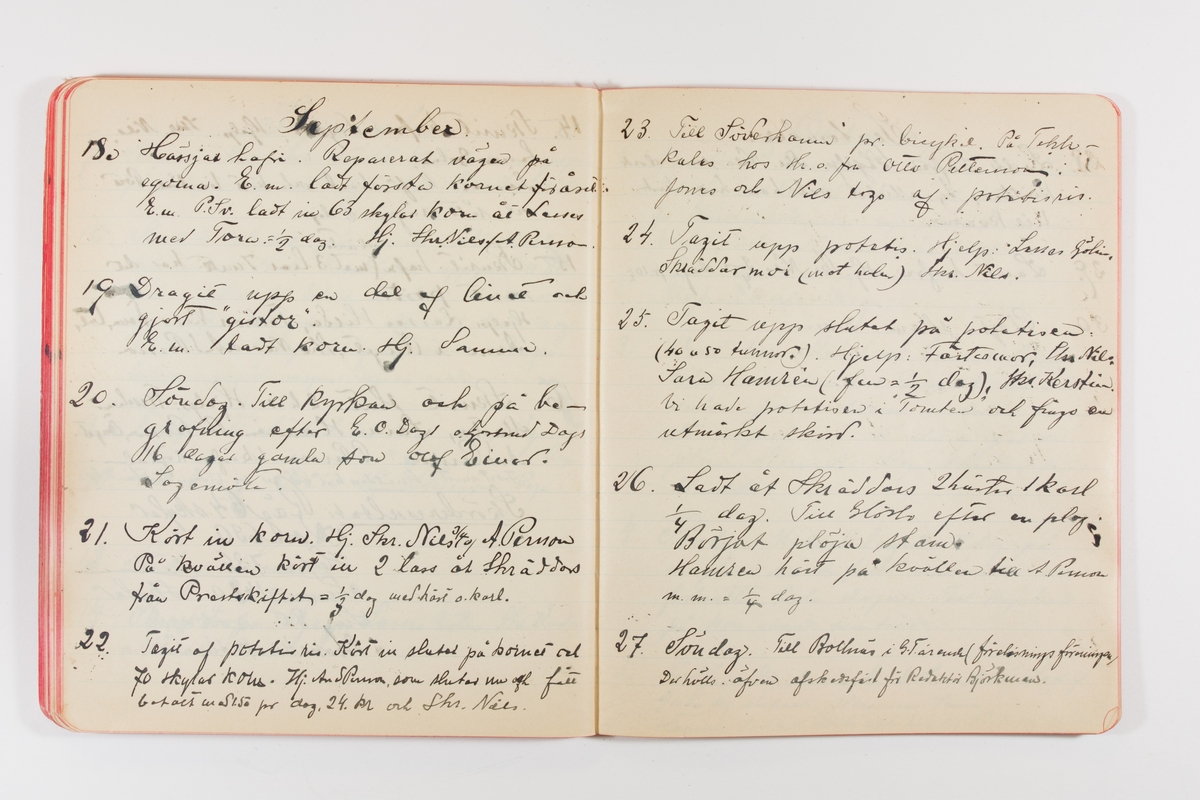 September.
18. Hässjat hafre. Reparerat vägen på
egorna. E. m. ladt första kornet
E.m. P. Sv. ladt in 63 skylar korn åt Lasses
med Tora = 1/2 dag. Hj. Skr. Nils, A. Person.
19 Dragit upp en del af linet och
gjort "gistor".
E. m. ladt korn. Hj. Samma.
20. Söndag. Till kyrkan och på be-
grafning efter E. O. Dags Dags
16 dagar gamla son Olof Einar.
21. Kört in korn. Hj. Skr. Nils 3/4, A Person
På kvällen kört in 2 lass åt Skräddars
från Prestskiftet, = 1/3 dag med häst o. karl.
22. Tagit af potatisris. Kört in slutet på kornet och
70 skylar korn. Hj. And Person, som slutar nu och fått
betalt pr dag, 24. kr och Skr. Nils.
23. Till Söderhamn pr. bicykel. På
kalas hos Hr. o. fru Otto Pettersson.
Jons och Nils togo af potatisris.
24. Tagit upp potatis. Hjelp: Lasses
Skräddarmor (mot halm) Skr. Nils.
25. Tagit upp slutet på potatisen.
(40 a 50 tunnor.). Hjelp: Skr. Nils.
Sara Hamrén (fm = 1/2 dag), Skr. Kerstin.
Vi hade potatisen i "Tomten" och fingo en
utmärkt skörd.
26. Ladt åt Skräddars 2 hästar 1 karl
1/4 dag. Till efter en plog.
Börjat plöja
Hamrén häst på kvällen till A. Person
m. m. = 1/4 dag.
27. Söndag. Till Bollnäs i G. (föreläsningsföreningen,
Der hölls äfven afskedsfest för Redaktör Björkman.